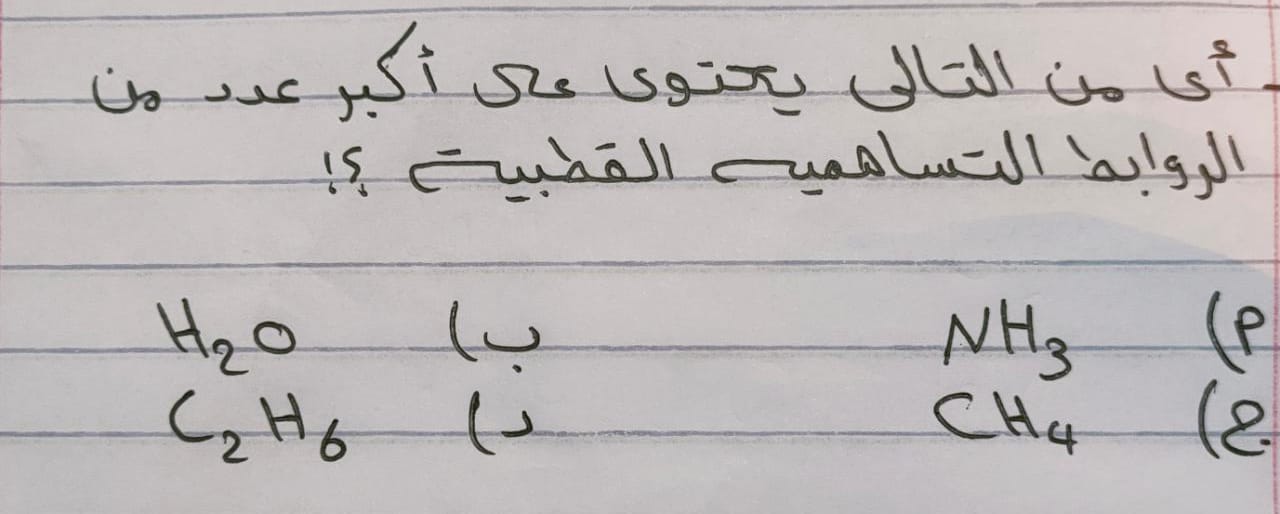 - أى من التالى يحتوى على أكبر عدد من
الروابط التساهميه القطبية ؟!
أ) NH3 ب) H2O
ج) CH4 د) C2H6